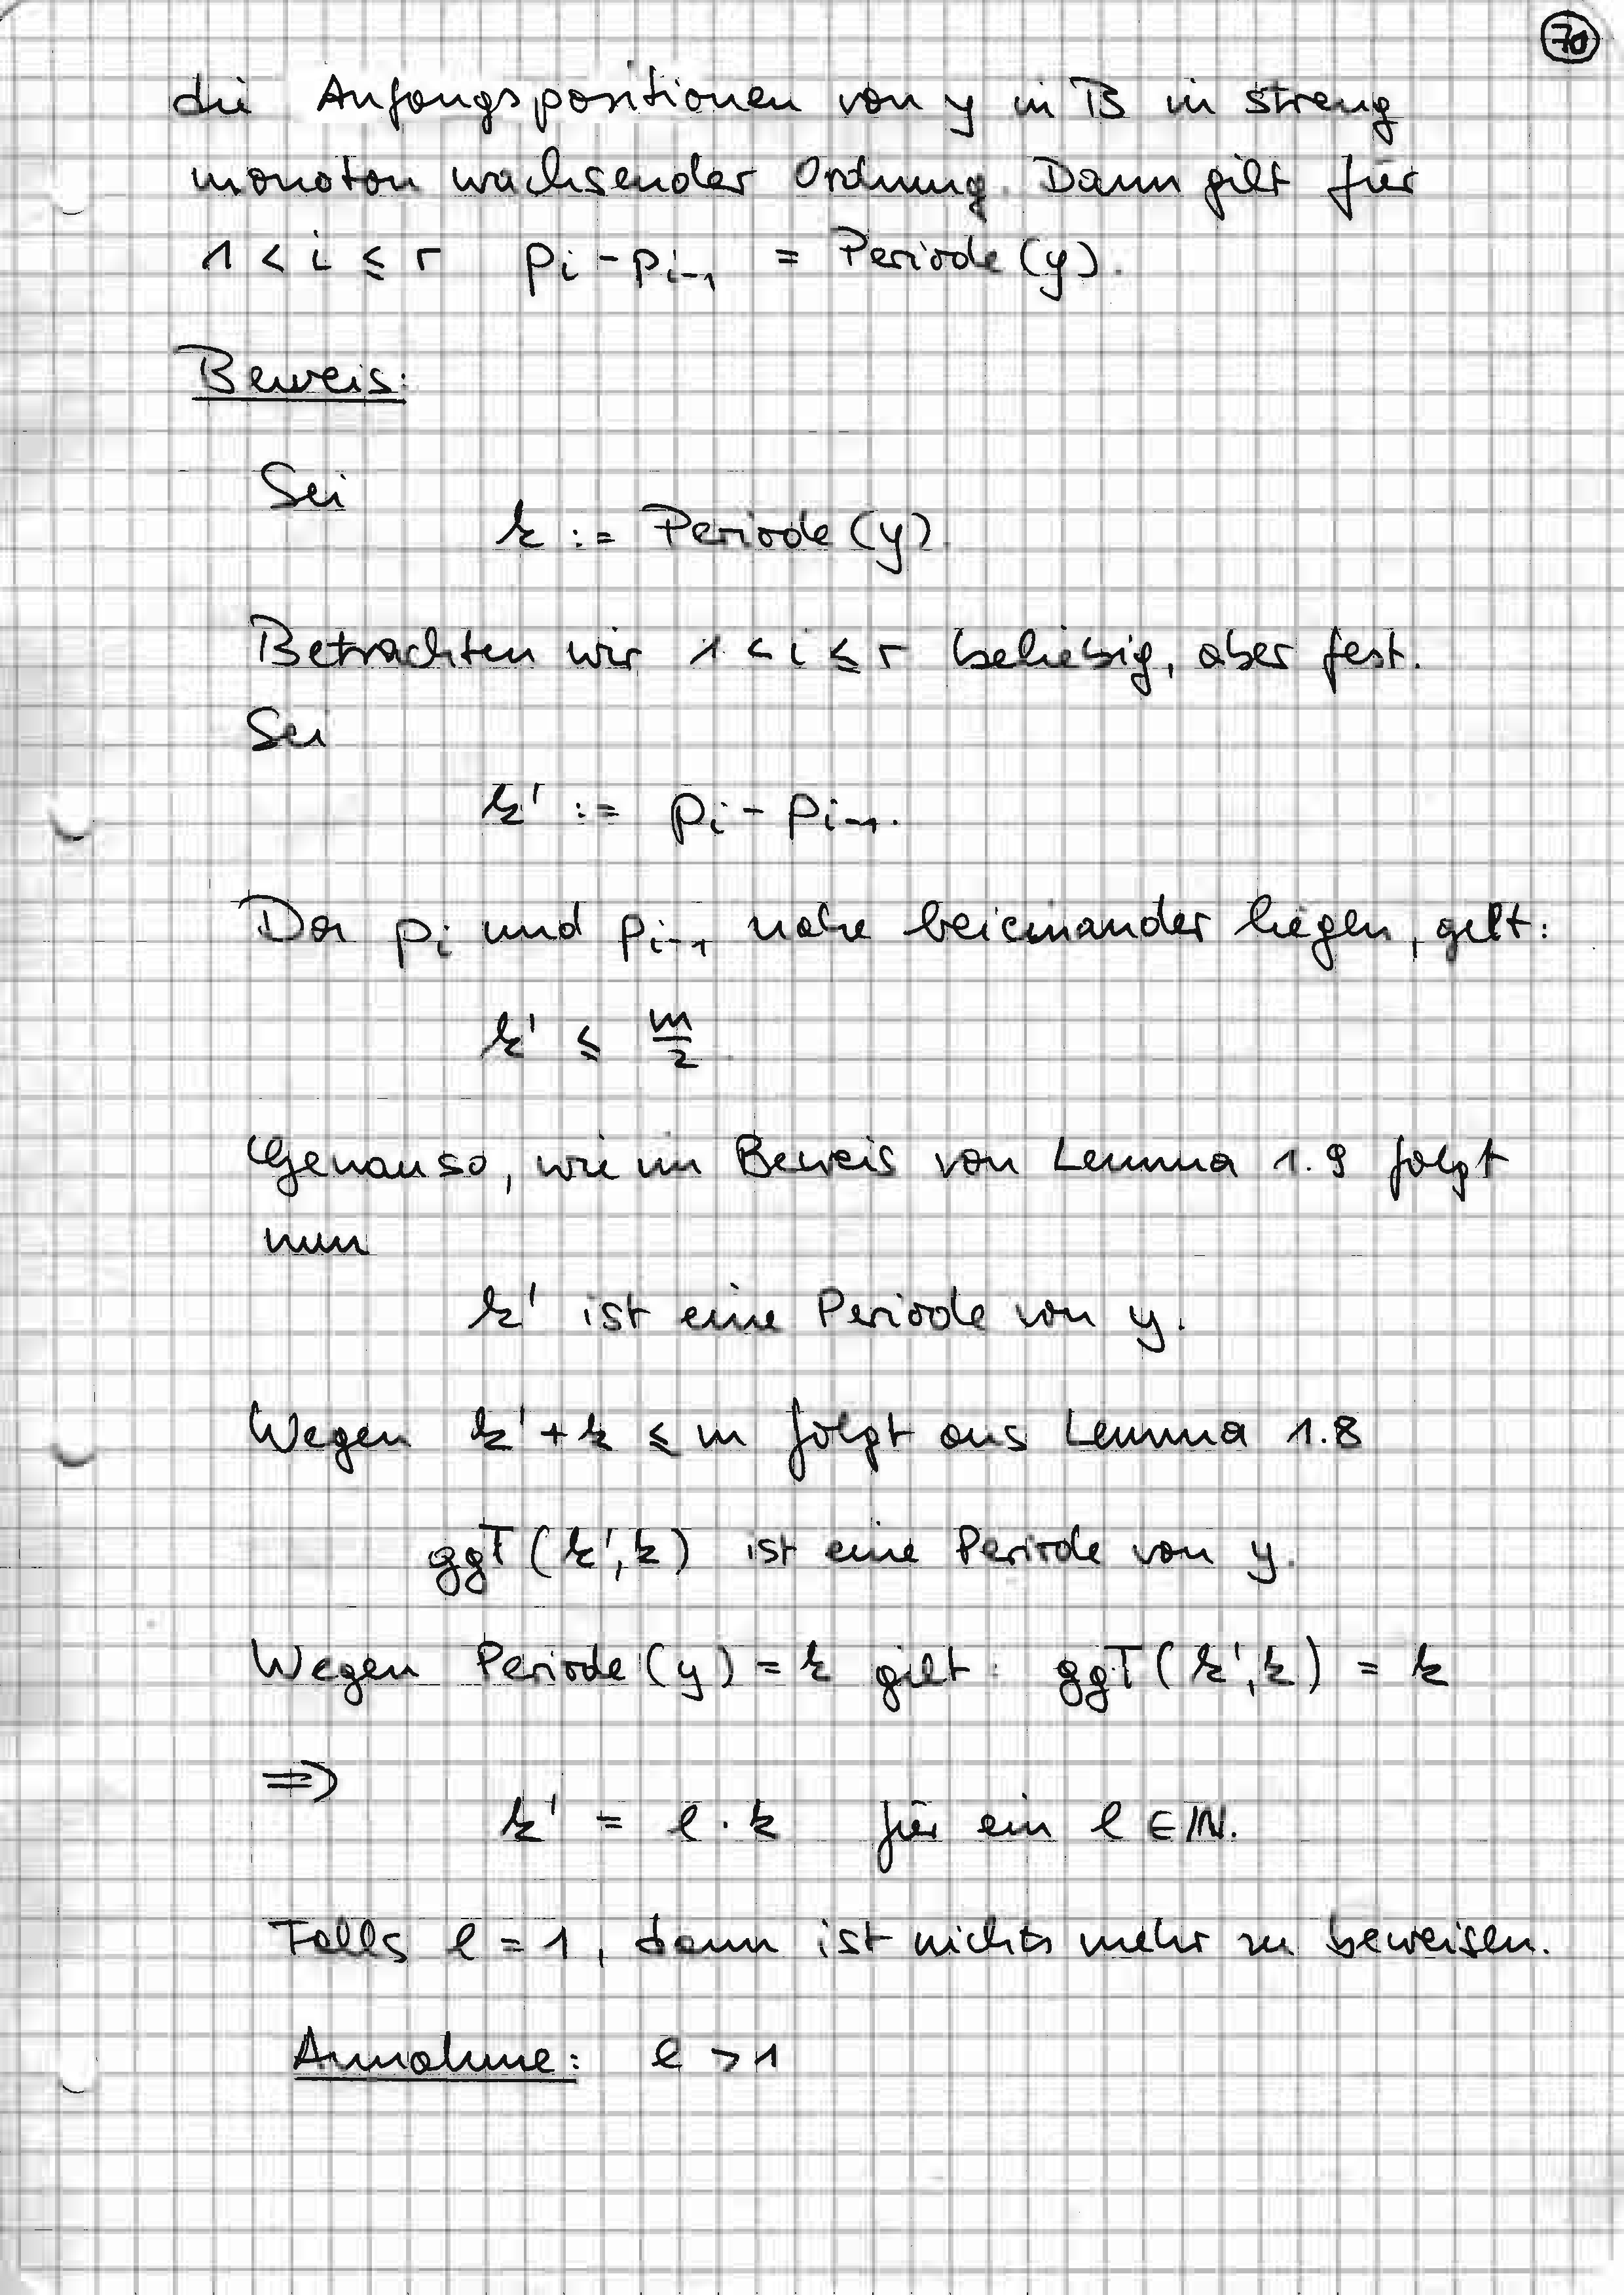 70
die Anfangspositionen von y in B in streng
monoton wachsender Ordnung. Dann gilt für
1 < i ≤ r pᵢ - pᵢ₋₁ = Periode (y).
Beweis:
Sei
k := Periode (y).
Betrachten wir 1 < i ≤ r beliebig, aber fest.
Sei
k' := pᵢ - pᵢ₋₁.
Da pᵢ und pᵢ₋₁ nahe beieinander liegen, gilt:
k' ≤ m/2.
Genauso, wie im Beweis von Lemma 1.9 folgt
nun
k' ist eine Periode von y.
Wegen k' + k ≤ m folgt aus Lemma 1.8
ggT (k', k) ist eine Periode von y.
Wegen Periode (y) = k gilt: ggT (k', k) = k
⇒
k' = l · k für ein l ∈ ℕ.
Falls l = 1, dann ist nichts mehr zu beweisen.
Annahme: l > 1